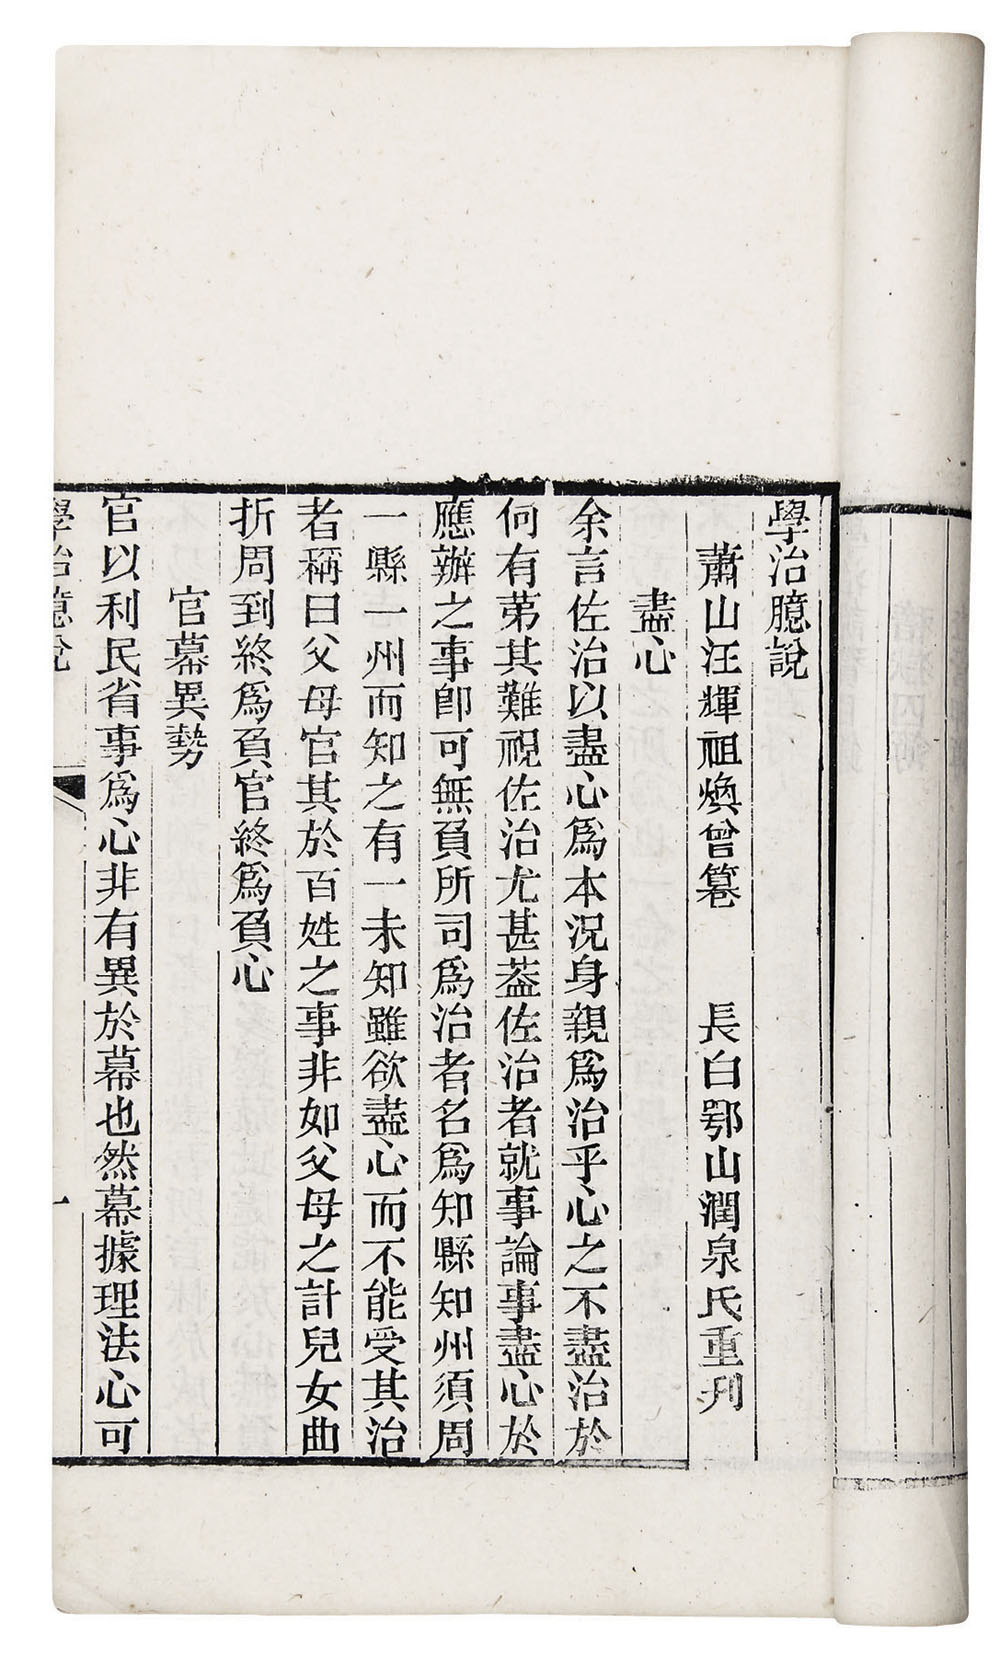 學治臆說
蕭山汪輝祖煥曾纂　長白鄂山潤泉氏重刋
盡心
余言佐治以盡心爲本況身親爲治乎心之不盡治於
何有苐其難視佐治尤甚葢佐治者就事論事盡心於
應辦之事卽可無負所司爲治者名爲知縣知州須周
一縣一州而知之有一未知雖欲盡心而不能受其治
者稱曰父母官其於百姓之事非如父母之計兒女曲
折周到終爲負官終爲負心
官幕異勢
官以利民省事爲心非有異於幕也然幕據理法心可
學治臆說
一